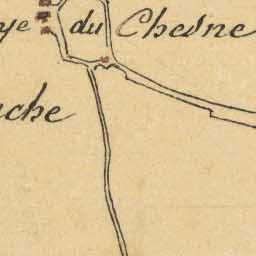 ye du Chesne
uche